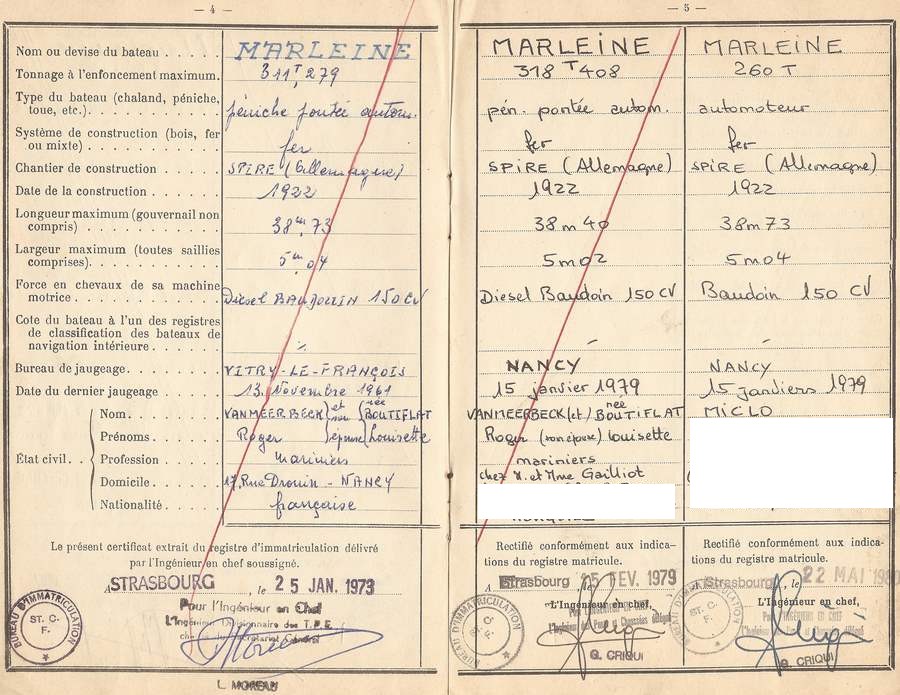 — 4 —
Nom ou devise du bateau . . . . . MARLEINE
Tonnage à l'enfoncement maximum. 311T,279
Type du bateau (chaland, péniche,
toue, etc.). . . . . . . . péniche pontée autom.
Système de construction (bois, fer
ou mixte) . . . . . . . . fer
Chantier de construction . . . . . SPIRE (Allemagne)
Date de la construction . . . . . 1922
Longueur maximum (gouvernail non
compris) . . . . . . . . 38m,73
Largeur maximum (toutes saillies
comprises). . . . . . . . 5m,04
Force en chevaux de sa machine
motrice . . . . . . . . Diesel BAUDOUIN 150 CV
Cote du bateau à l'un des registres
de classification des bateaux de
navigation intérieure . . . . .
Bureau de jaugeage. . . . . . VITRY-LE-FRANÇOIS
Date du dernier jaugeage . . . . 13 Novembre 1961
État civil. .
Nom. . . . . VANMEERBECK et son née BOUTIFLAT
Prénoms. . . . Roger épouse Louisette
Profession . . . mariniers
Domicile. . . . 17, Rue Drouin - NANCY
Nationalité. . . . française
Le présent certificat extrait du registre d'immatriculation délivré
par l'Ingénieur en chef soussigné.
A STRASBOURG , le 25 JAN. 1973
Pour l'Ingénieur en Chef
L'Ingénieur Divisionnaire des T.P.E.
Secrétariat Général
BUREAU D'IMMATRICULATION
ST. C.
F.
L. MOREAU
— 5 —
MARLEINE
318 T 408
pén. pontée autom.
fer
SPIRE (Allemagne)
1922
38m40
5m02
Diesel Baudoin 150 CV
NANCY
15 janvier 1979
VANMEERBECK (et) née BOUTIFLAT
Roger (son épouse) Louisette
mariniers
chez M. et Mme Gailliot
Rectifié conformément aux indica-
tions du registre matricule.
A Strasbourg 15 FEV. 1979
L'Ingénieur en chef,
BUREAU D'IMMATRICULATION
ST. C.
F.
G. CRIQUI
MARLEINE
260 T
automoteur
fer
SPIRE (Allemagne)
1922
38m73
5m04
Baudoin 150 CV
NANCY
15 janviers 1979
MICLO
Rectifié conformément aux indica-
tions du registre matricule.
A Strasbourg , le 22 MAI 1980
L'Ingénieur en chef,
BUREAU D'IMMATRICULATION
ST. C.
F.
G. CRIQUI